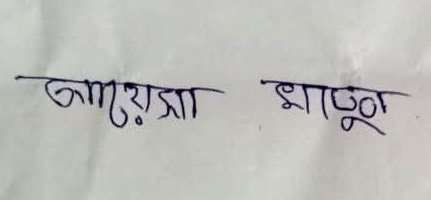 আয়েসা খাতুন